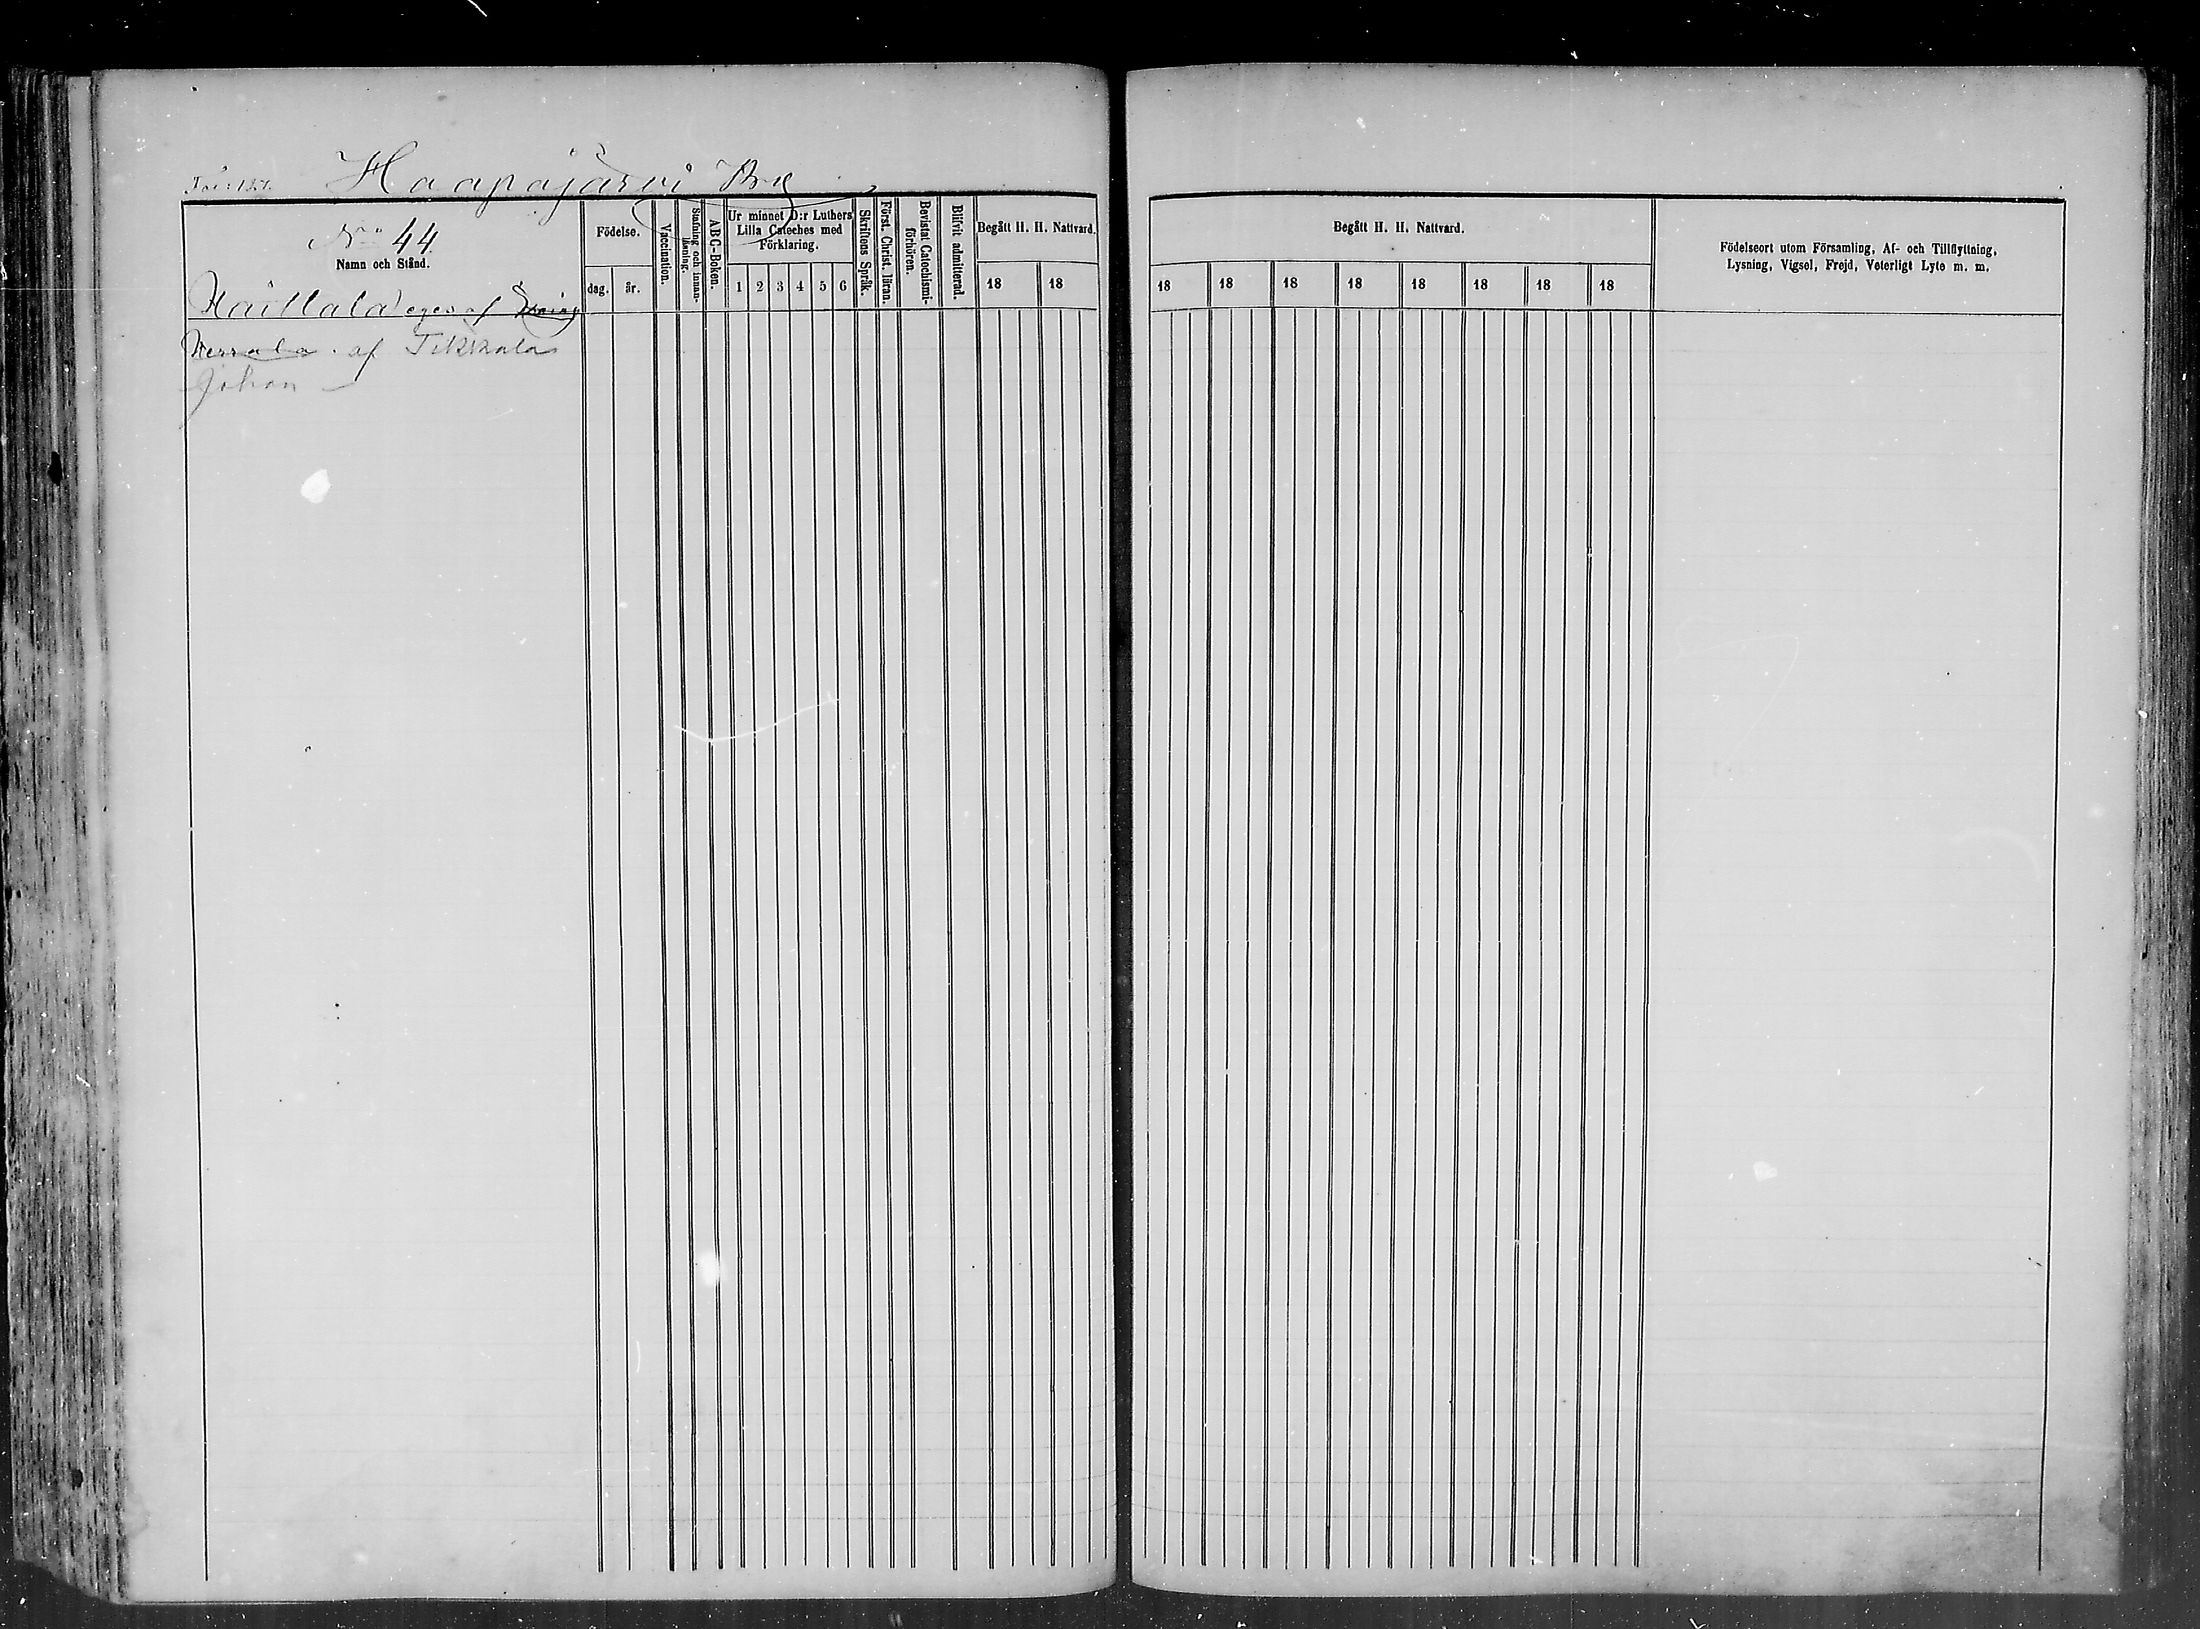 Haapajärvi By
N:o 44.
Namn och Stånd.
Födelse.
dag. år.
Vaccination.
Stafning och innanläsning.
ABC-Boken.
Ur minnet D:r Luthers
Lilla Cateches med
Förklaring.
1 2 3 4 5 6
Skriftens Språk.
Först. Christ. läran.
Bevistat Catechismi-
förhören.
Blifvit admitterad.
Begått H. H. Nattvard.
18 18
af
af Tikkala
Johan
Begått H. H. Nattvard.
18 18 18 18 18 18 18 18
Födelseort utom Församling, Af- och Tillflyttning,
Lysning, Vigsel, Frejd, Veterligt Lyte m. m.